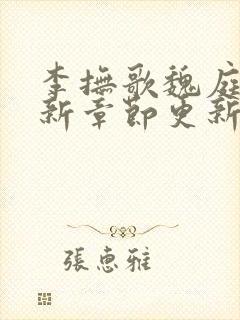 李撫歌魏庭
新章節更新
張惠雅